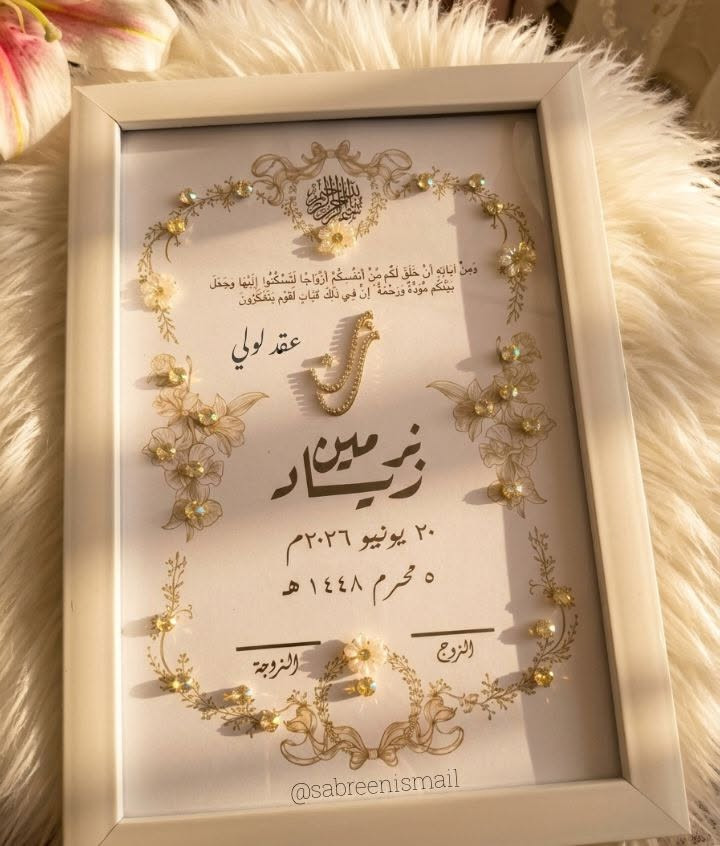 بسم الله الرحمن الرحيم
وَمِنْ آيَاتِهِ أَنْ خَلَقَ لَكُم مِّنْ أَنفُسِكُمْ أَزْوَاجًا لِّتَسْكُنُوا إِلَيْهَا وَجَعَلَ
بَيْنَكُم مَّوَدَّةً وَرَحْمَةً ۚ إِنَّ فِي ذَٰلِكَ لَآيَاتٍ لِّقَوْمٍ يَتَفَكَّرُونَ
عقد لولي
نرمين
زياد
٢٠ يونيو ٢٠٢٦م
٥ محرم ١٤٤٨ هـ
الزوج
الزوجة
@sabreenismail